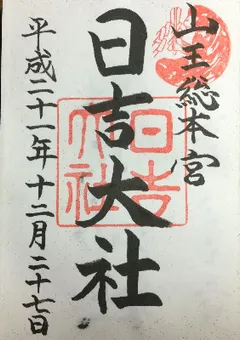 山王総本宮
日吉大社
平成二十一年十二月二十七日
日吉大社